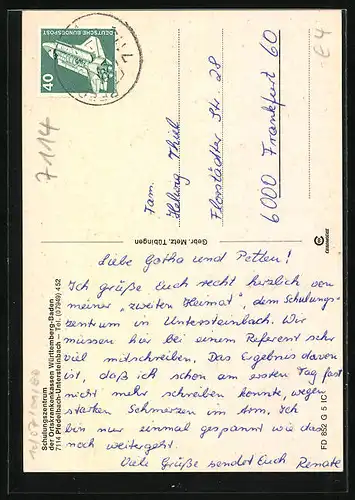 DEUTSCHE BUNDESPOST
40
7114
€ 4
Fam.
Helwig Thiel
Florstädter Str. 28
6000 Frankfurt 60
Gebr. Metz, Tübingen
Liebe Gotha und Petten!
Ich grüße Euch recht herzlich von
meiner "zweiten Heimat", dem Schulungs-
zentrum in Untersteinbach. Wir
müssen hier bei einem Referent sehr
viel mitschreiben. Das Ergebnis davon
ist, daß ich schon am ersten Tag fast
nicht mehr schreiben konnte, wegen
starken Schmerzen im Arm. Ich
bin nur einmal gespannt wie das
noch weitergeht.
Viele Grüße sendet Euch Renate
Schulungszentrum
der Ortskrankenkassen Württemberg-Baden
7114 Pfedelbach-Untersteinbach – Tel. (07949) 452
FD 852 G 5 IC